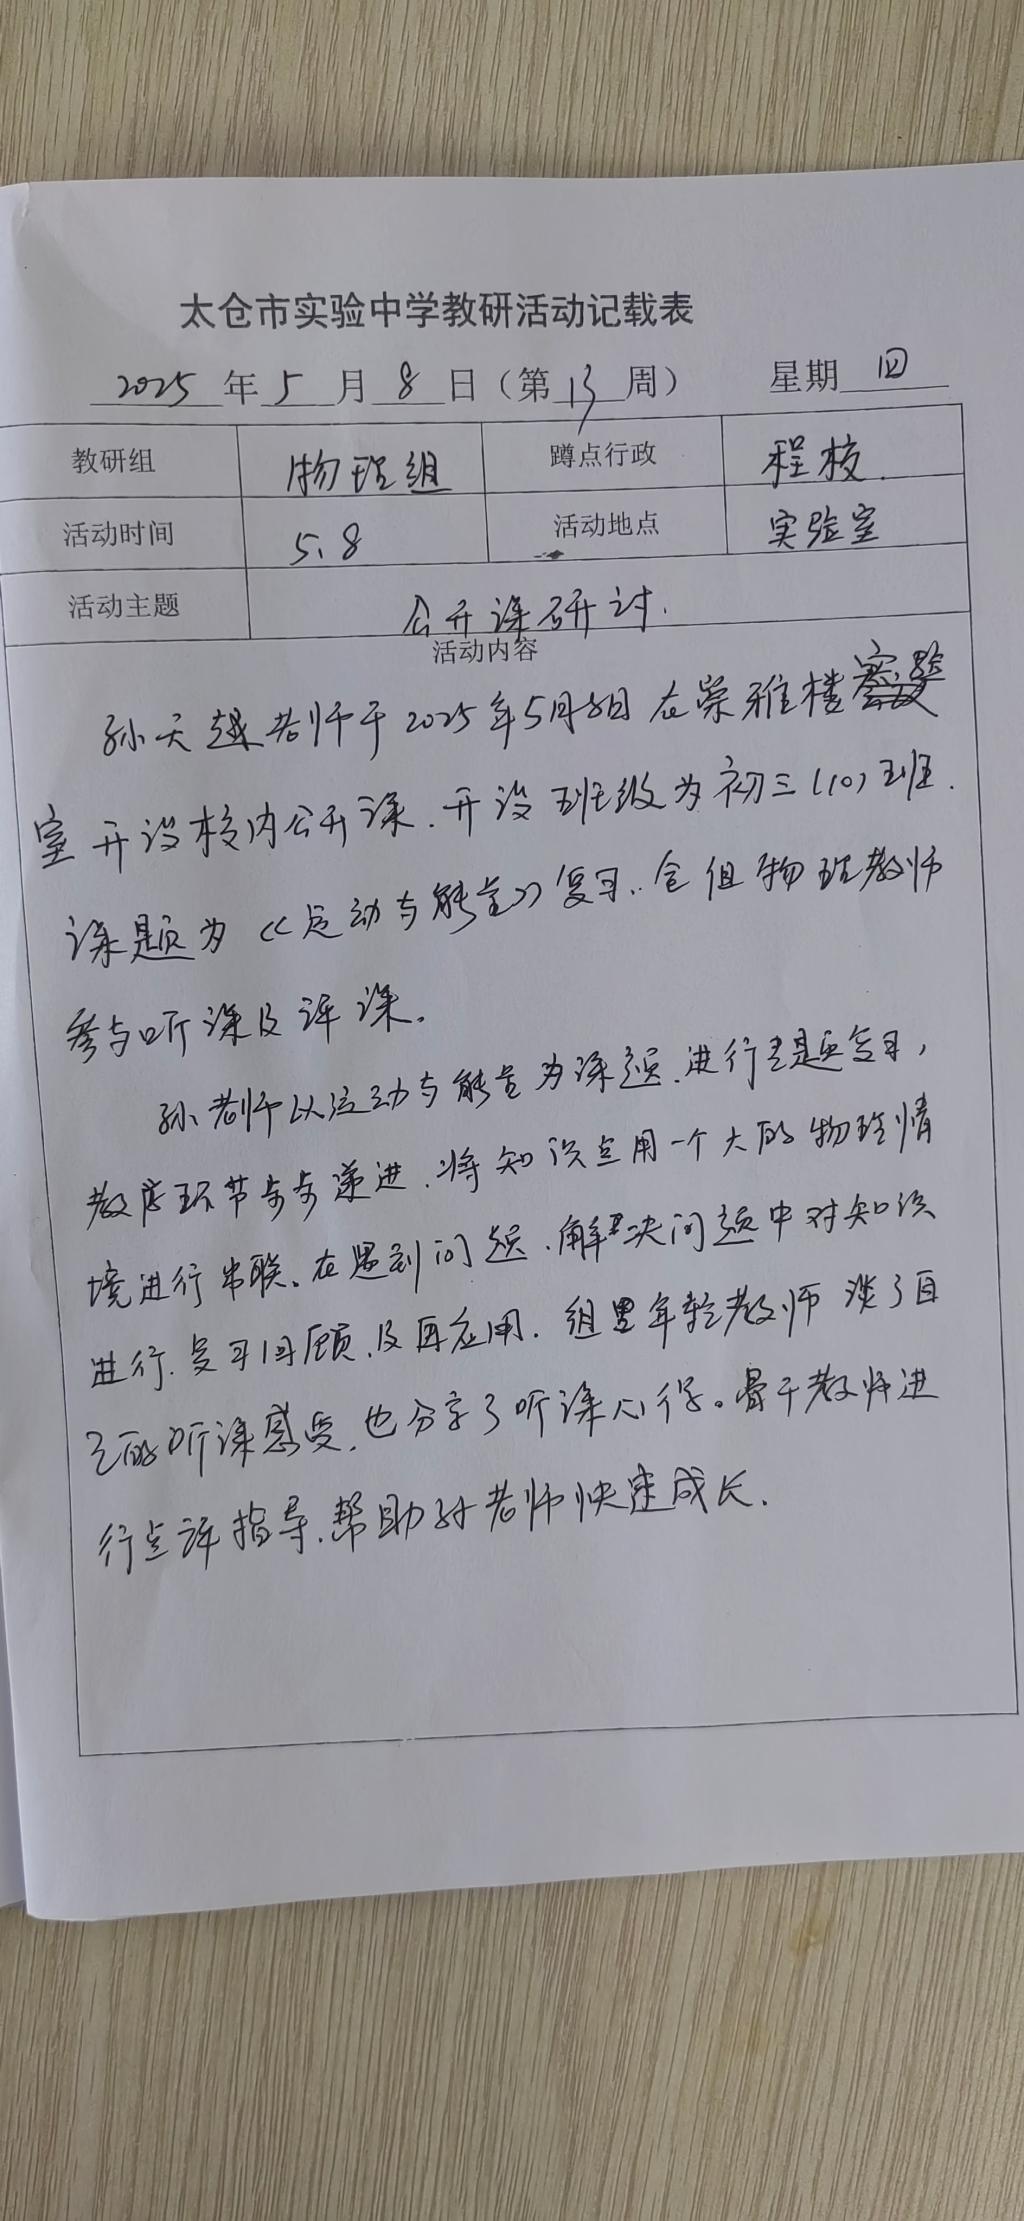 太仓市实验中学教研活动记载表
2025年5月8日（第13周） 星期四
教研组 物理组 蹲点行政 程校.
活动时间 5.8 活动地点 实验室
活动主题 公开课研讨.
活动内容
孙天越老师于2025年5月8日在崇雅楼实验
室开设校内公开课.开设班级为初三(10)班.
课题为《运动与能量》复习.全组物理教师
参与听课及评课。
孙老师以运动与能量为课题.进行专题复习,
教学环节步步递进.将知识点用一个大的物理情
境进行串联。在遇到问题.解决问题中对知识
进行.复习回顾.及再应用.组里年轻教师谈了自
己的听课感受.也分享了听课心得。骨干教师进
行点评指导.帮助孙老师快速成长.